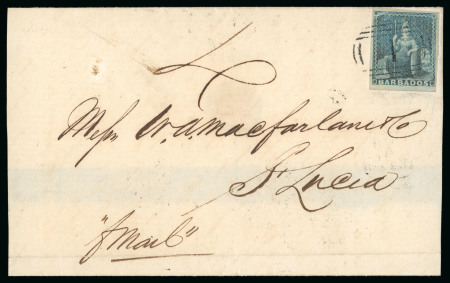 BARBADOS
1
4
Messrs W. A. Macfarlane & Co
St Lucia
"p Mail"